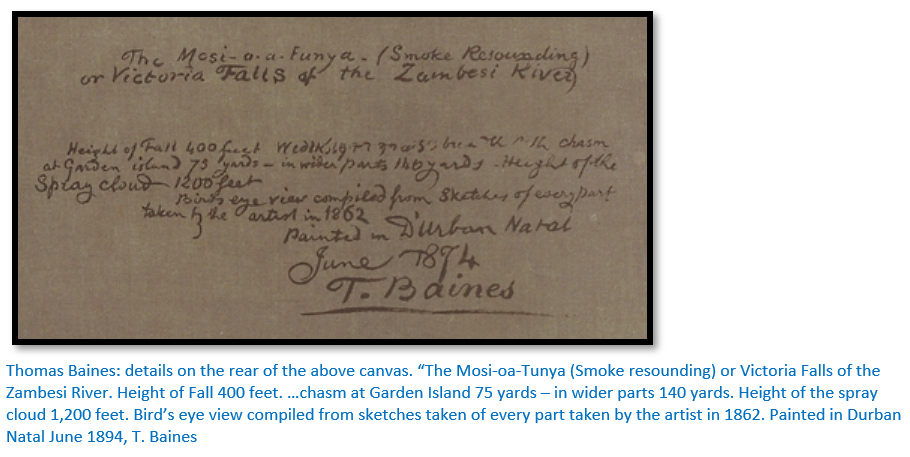 The Mosi-o-a-Funya. (Smoke Resounding)
or Victoria Falls of the Zambesi River
Height of Fall 400 feet chasm
at Garden island 75 yards – in wider parts 140 yards. Height of the
Spray cloud – 1200 feet
Birds eye view compiled from Sketches of every part
taken by the artist in 1862
Painted in D'urban Natal
June 1874
T. Baines
Thomas Baines: details on the rear of the above canvas. “The Mosi-oa-Tunya (Smoke resounding) or Victoria Falls of the
Zambesi River. Height of Fall 400 feet. …chasm at Garden Island 75 yards – in wider parts 140 yards. Height of the spray
cloud 1,200 feet. Bird’s eye view compiled from sketches taken of every part taken by the artist in 1862. Painted in Durban
Natal June 1894, T. Baines